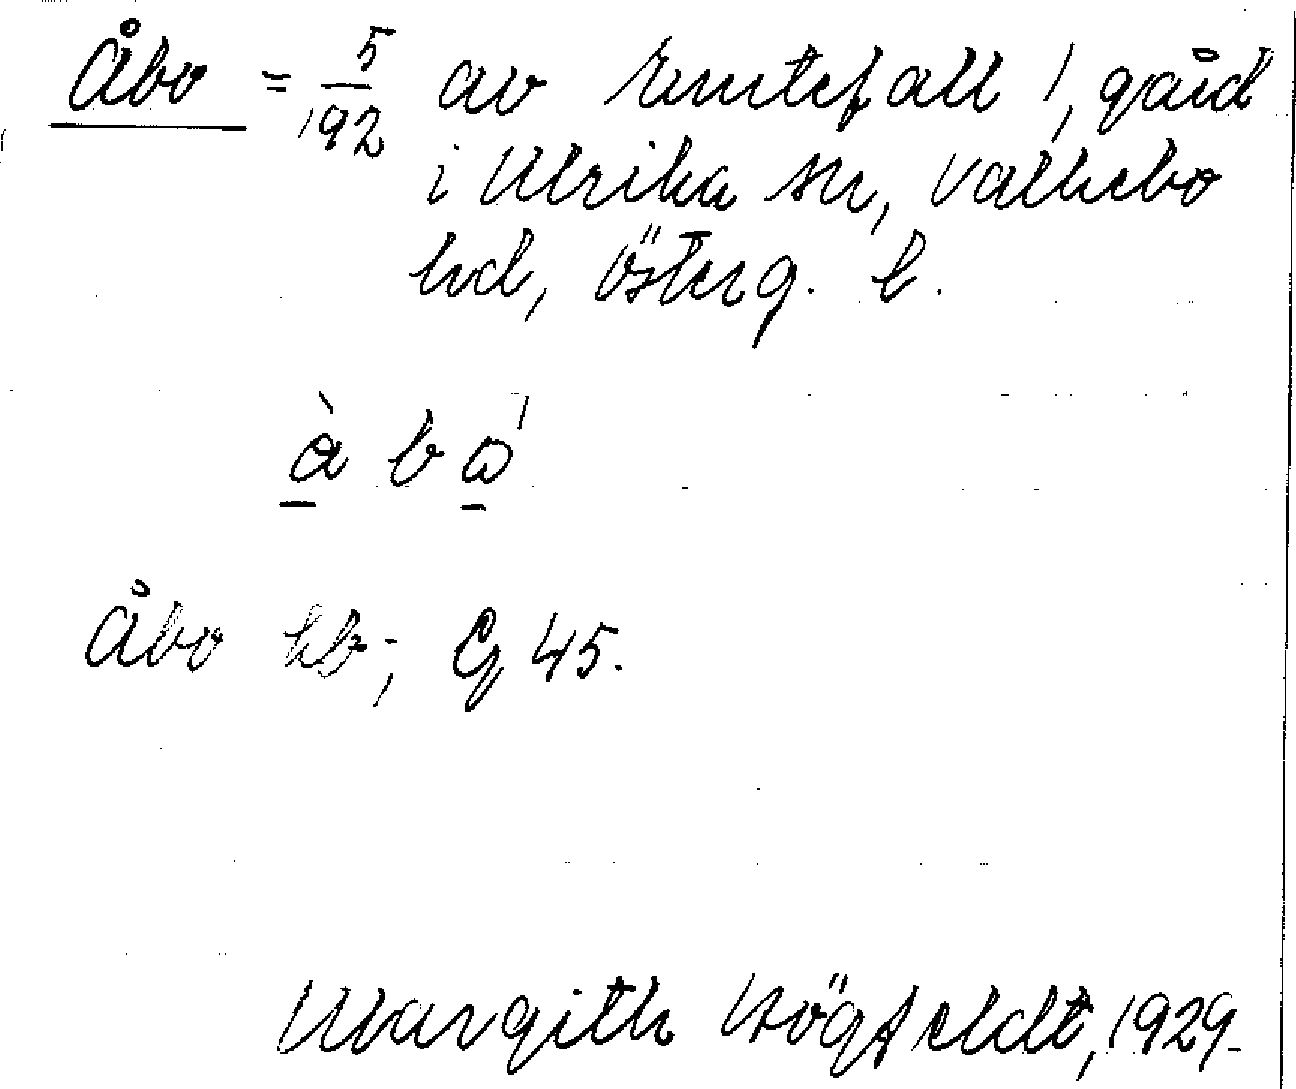 Åbo = 5/192 av Rumtefall 1, gård
i Ulrika sn, Valkebo
hd, Österg. l.
à b ώ
Åbo hb; G 45.
Margith Högfeldt, 1929.